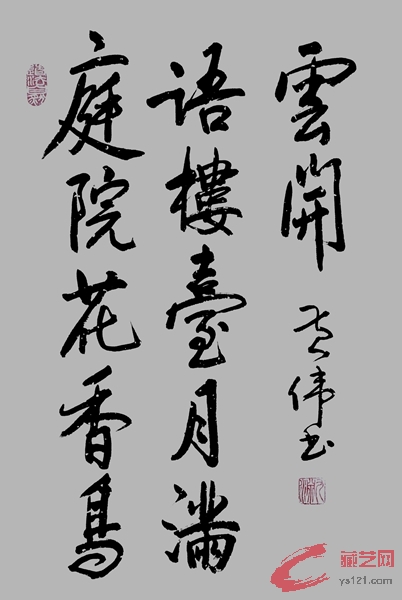 庭院花香鳥
語樓臺月滿
雲開
伟书
藏艺网
ys121.com